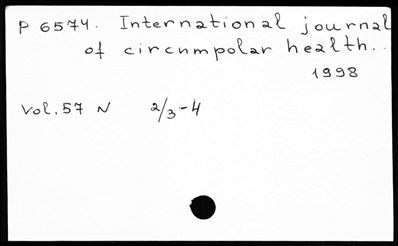 P 6574. International journal
of circumpolar health..
1998
Vol. 57 N 2/3-4